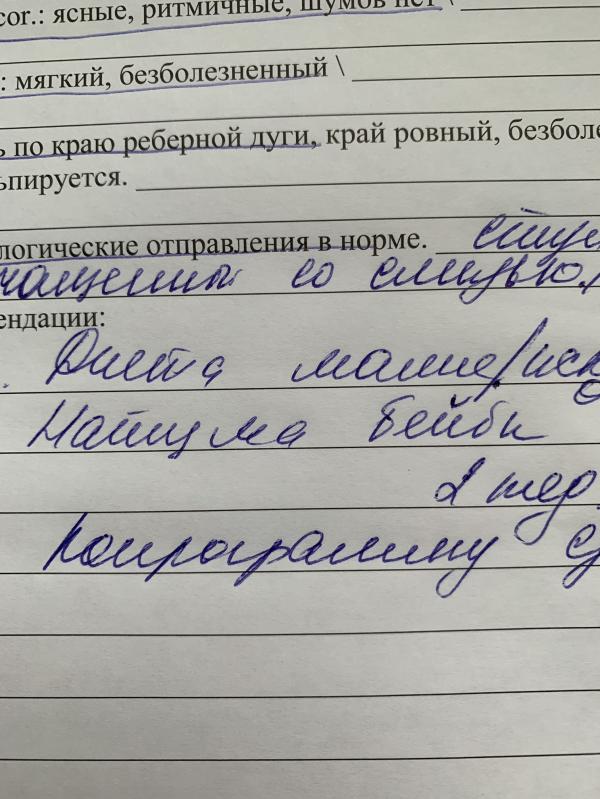 cor.: ясные, ритмичные, шумов нет \
: мягкий, безболезненный \
ь по краю реберной дуги, край ровный, безболе
ьпируется.
логические отправления в норме. стул
чащенный со слизью.
ендации:
Диета маме/иск
бейби
2 нед
Копрограмму с